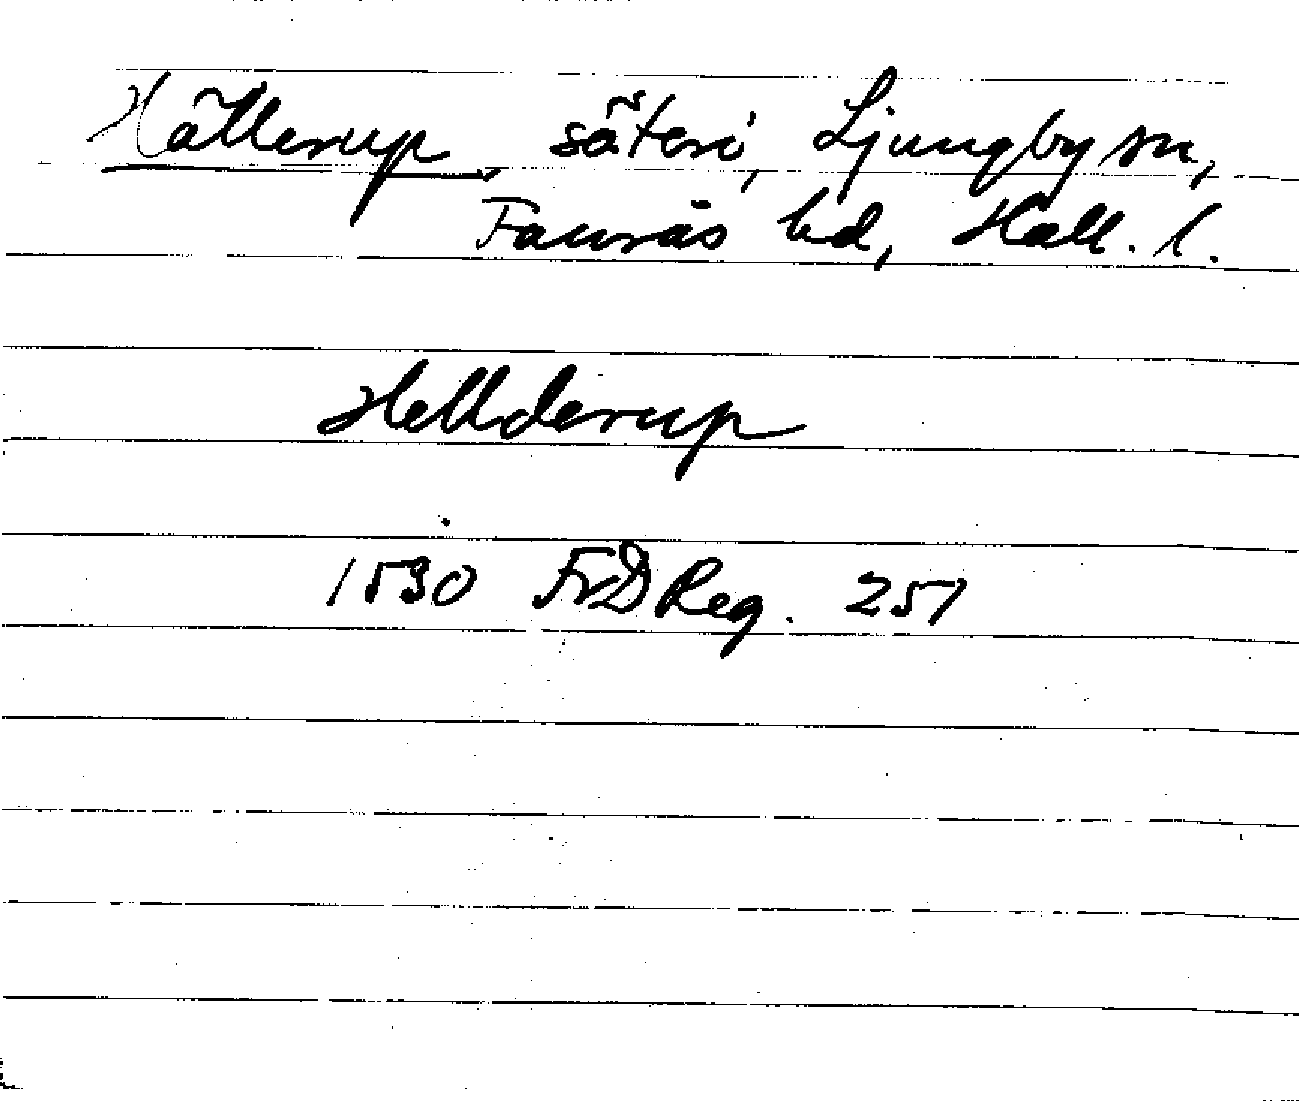 Hällerup, säteri, Ljungby sn,
Faurås hd, Hall. l.
Hellderup
1530 FrDReg. 257